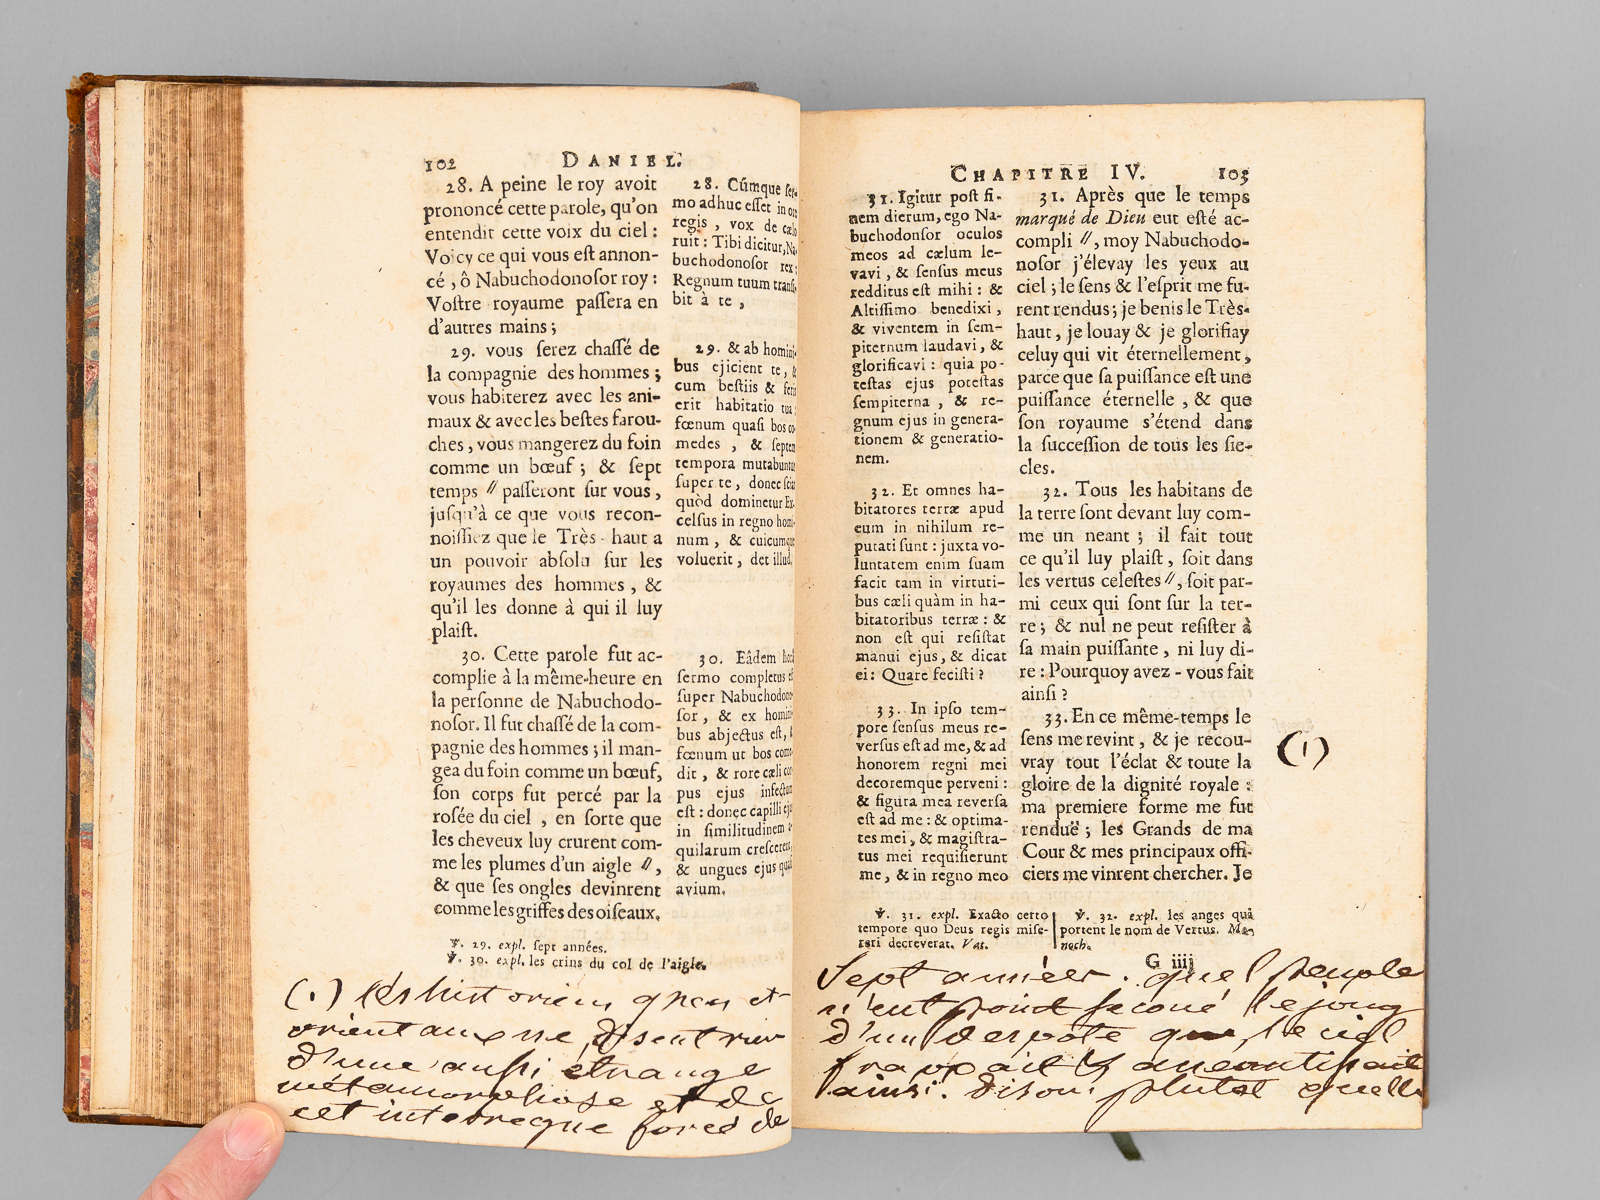 102 DANIEL.
28. A peine le roy avoit
prononcé cette parole, qu'on
entendit cette voix du ciel :
Voicy ce qui vous est annon-
cé, ô Nabuchodonosor roy :
Vostre royaume passera en
d'autres mains ;
29. vous serez chassé de
la compagnie des hommes ;
vous habiterez avec les ani-
maux & avec les bestes farou-
ches, vous mangerez du foin
comme un bœuf ; & sept
temps // passeront sur vous,
jusqu'à ce que vous recon-
noissiez que le Très-haut a
un pouvoir absolu sur les
royaumes des hommes, &
qu'il les donne à qui il luy
plaist.
30. Cette parole fut ac-
complie à la même-heure en
la personne de Nabuchodo-
nosor. Il fut chassé de la com-
pagnie des hommes ; il man-
gea du foin comme un bœuf,
son corps fut percé par la
rosée du ciel, en sorte que
les cheveux luy crurent com-
me les plumes d'un aigle //,
& que ses ongles devinrent
comme les griffes des oiseaux.
28. Cúmque ser-
mo adhuc esset in ore
regis, vox de cælo
ruit : Tibi dicitur, Na-
buchodonosor rex :
Regnum tuum transi-
bit à te,
29. & ab homini-
bus ejicient te, &
cum bestiis & feris
erit habitatio tua :
fœnum quasi bos co-
medes, & septem
tempora mutabuntur
super te, donec scias
quòd dominetur Ex-
celsus in regno homi-
num, & cuicumque
voluerit, det illud.
30. Eâdem horâ
sermo completus est
super Nabuchodono-
sor, & ex homini-
bus abjectus est, &
fœnum ut bos come-
dit, & rore cæli cor-
pus ejus infectum
est : donec capilli ejus
in similitudinem a-
quilarum crescerent,
& ungues ejus quasi
avium.
℣. 29. expl. sept années.
℣. 30. expl. les crins du col de l'aigle.
(1) les historiens grecs et
orientaux ne disent rien
d'une aussi étrange
metamorphose et de
cet interregne forcé de
CHAPITRE IV. 103
31. Igitur post fi-
nem dierum, ego Na-
buchodonosor oculos
meos ad cælum le-
vavi, & sensus meus
redditus est mihi : &
Altissimo benedixi,
& viventem in sem-
piternum laudavi, &
glorificavi : quia po-
testas ejus potestas
sempiterna, & re-
gnum ejus in genera-
tionem & generatio-
nem.
32. Et omnes ha-
bitatores terræ apud
eum in nihilum re-
putati sunt : juxta vo-
luntatem enim suam
facit tam in virtuti-
bus cæli quàm in ha-
bitatoribus terræ : &
non est qui resistat
manui ejus, & dicat
ei : Quare fecisti ?
33. In ipso tem-
pore sensus meus re-
versus est ad me, & ad
honorem regni mei
decoremque perveni :
& figura mea reversa
est ad me : & optima-
tes mei, & magistra-
tus mei requisierunt
me, & in regno meo
31. Après que le temps
marqué de Dieu eut esté ac-
compli //, moy Nabuchodo-
nosor j'élevay les yeux au
ciel ; le sens & l'esprit me fu-
rent rendus ; je benis le Très-
haut, je louay & je glorifiay
celuy qui vit éternellement,
parce que sa puissance est une
puissance éternelle, & que
son royaume s'étend dans
la succession de tous les sie-
cles.
32. Tous les habitans de
la terre sont devant luy com-
me un neant ; il fait tout
ce qu'il luy plaist, soit dans
les vertus celestes //, soit par-
mi ceux qui sont sur la ter-
re ; & nul ne peut resister à
sa main puissante, ni luy di-
re : Pourquoy avez-vous fait
ainsi ?
33. En ce même-temps le
sens me revint, & je recou-
vray tout l'éclat & toute la
gloire de la dignité royale :
ma premiere forme me fut
renduë ; les Grands de ma
Cour & mes principaux offi-
ciers me vinrent chercher. Je
(1)
℣. 31. expl. Exacto certo
tempore quo Deus regis mise-
reri decreverat. Vat.
℣. 32. expl. les anges qui
portent le nom de Vertus. Me-
noch.
G iiij
Sept années. quel peuple
n'eut point secoué le joug
d'un despote que le ciel
frappait & aneantissait
ainsi. disons plutot quelle